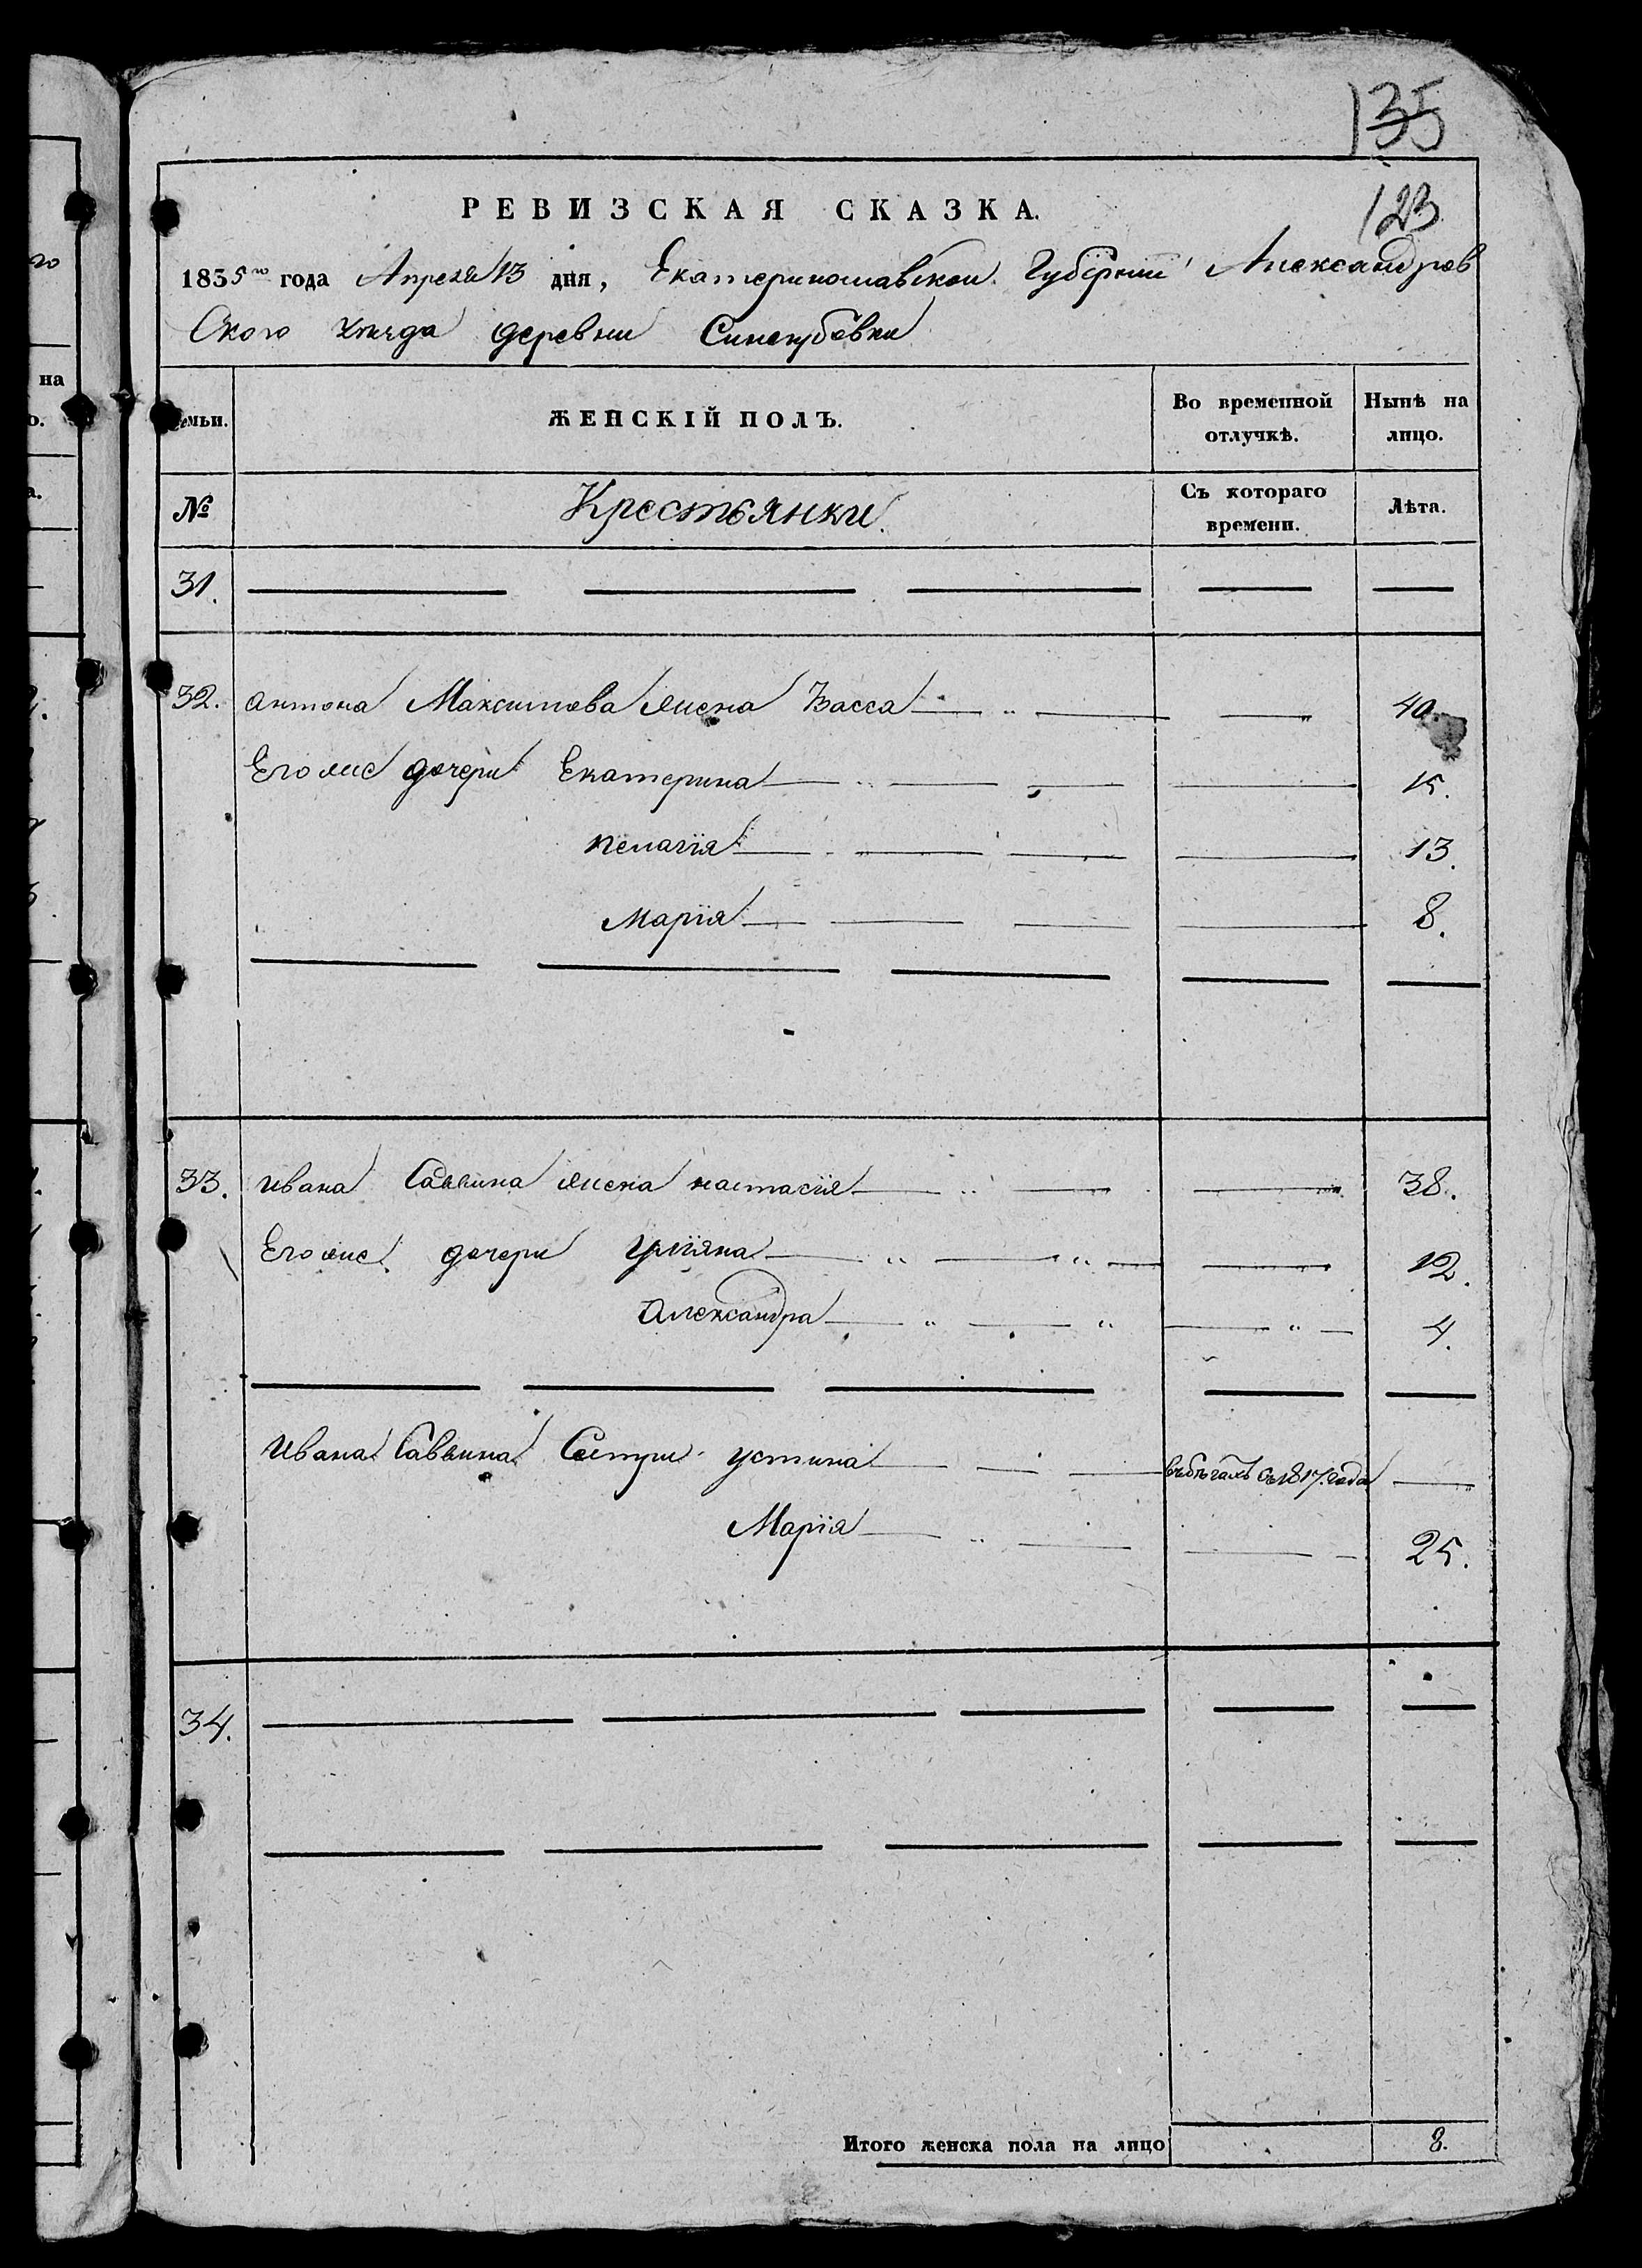 135
123
РЕВИЗСКАЯ СКАЗКА.
1835го года Апреля 13 дня, Екатеринославской Губернии Александров
Ского уезда деревни Синегубовки
емьи. ЖЕНСКІЙ ПОЛЪ. Во временной отлучкѣ. Нынѣ на лицо.
№ Крестьянки. Съ котораго времени. Лѣта.
31.
32. Антона Максимова жена Васса 40.
Его же дочери Екатерина 15.
Пелагія 13.
Марія 8.
33. Ивана Саввина жена Настасія 38.
Его же дочери Уліяна 12.
Александра 4.
Ивана Саввина Сестри Устина въ бѣгахъ Съ 1817 года
Марія 25.
34.
Итого женска пола на лицо 8.
на